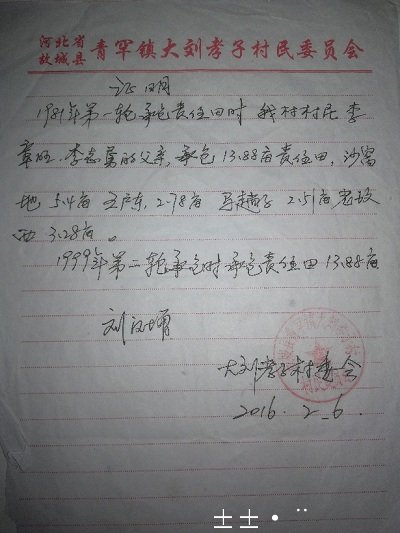 河北省
故城县 青罕镇大刘孝子村民委员会
证明
1981年第一轮承包责任田时 我村村民 李
章旺、李志勇的父亲，承包13.88亩责任田，沙窝
地 5.4亩 王户东，2.78亩 马趟子 2.51亩，老坟
西 3.28亩。
1999年第二轮承包时承包责任田13.88亩
大刘孝子村委会
2016.2-6.